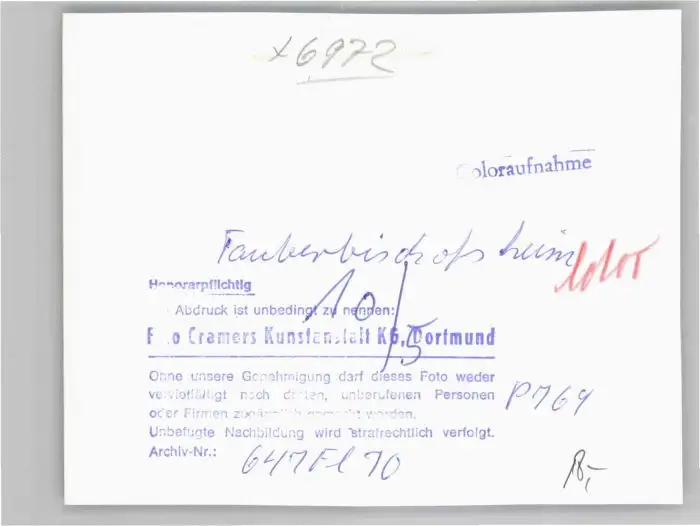 x6972
Coloraufnahme
Tauberbischofsheim
color
Honorarpflichtig
10/5
Abdruck ist unbedingt zu nennen:
Foto Cramers Kunstanstalt KG, Dortmund
Ohne unsere Genehmigung darf dieses Foto weder
vervielfältigt noch dritten, unberufenen Personen
oder Firmen zugänglich gemacht werden.
P769
Unbefugte Nachbildung wird strafrechtlich verfolgt.
Archiv-Nr.: 647Fl70
18,-